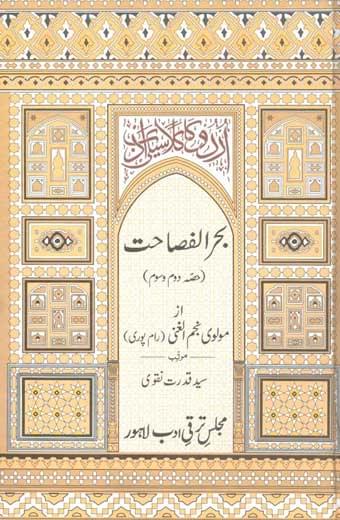 اردو کا کلاسیکی ادب
بحر الفصاحت
(حصّہ دوم و سوم)
از
مولوی نجم الغنی (رام پوری)
مرتّبہ
سید قدرت نقوی
مجلسِ ترقیِ ادب لاہور